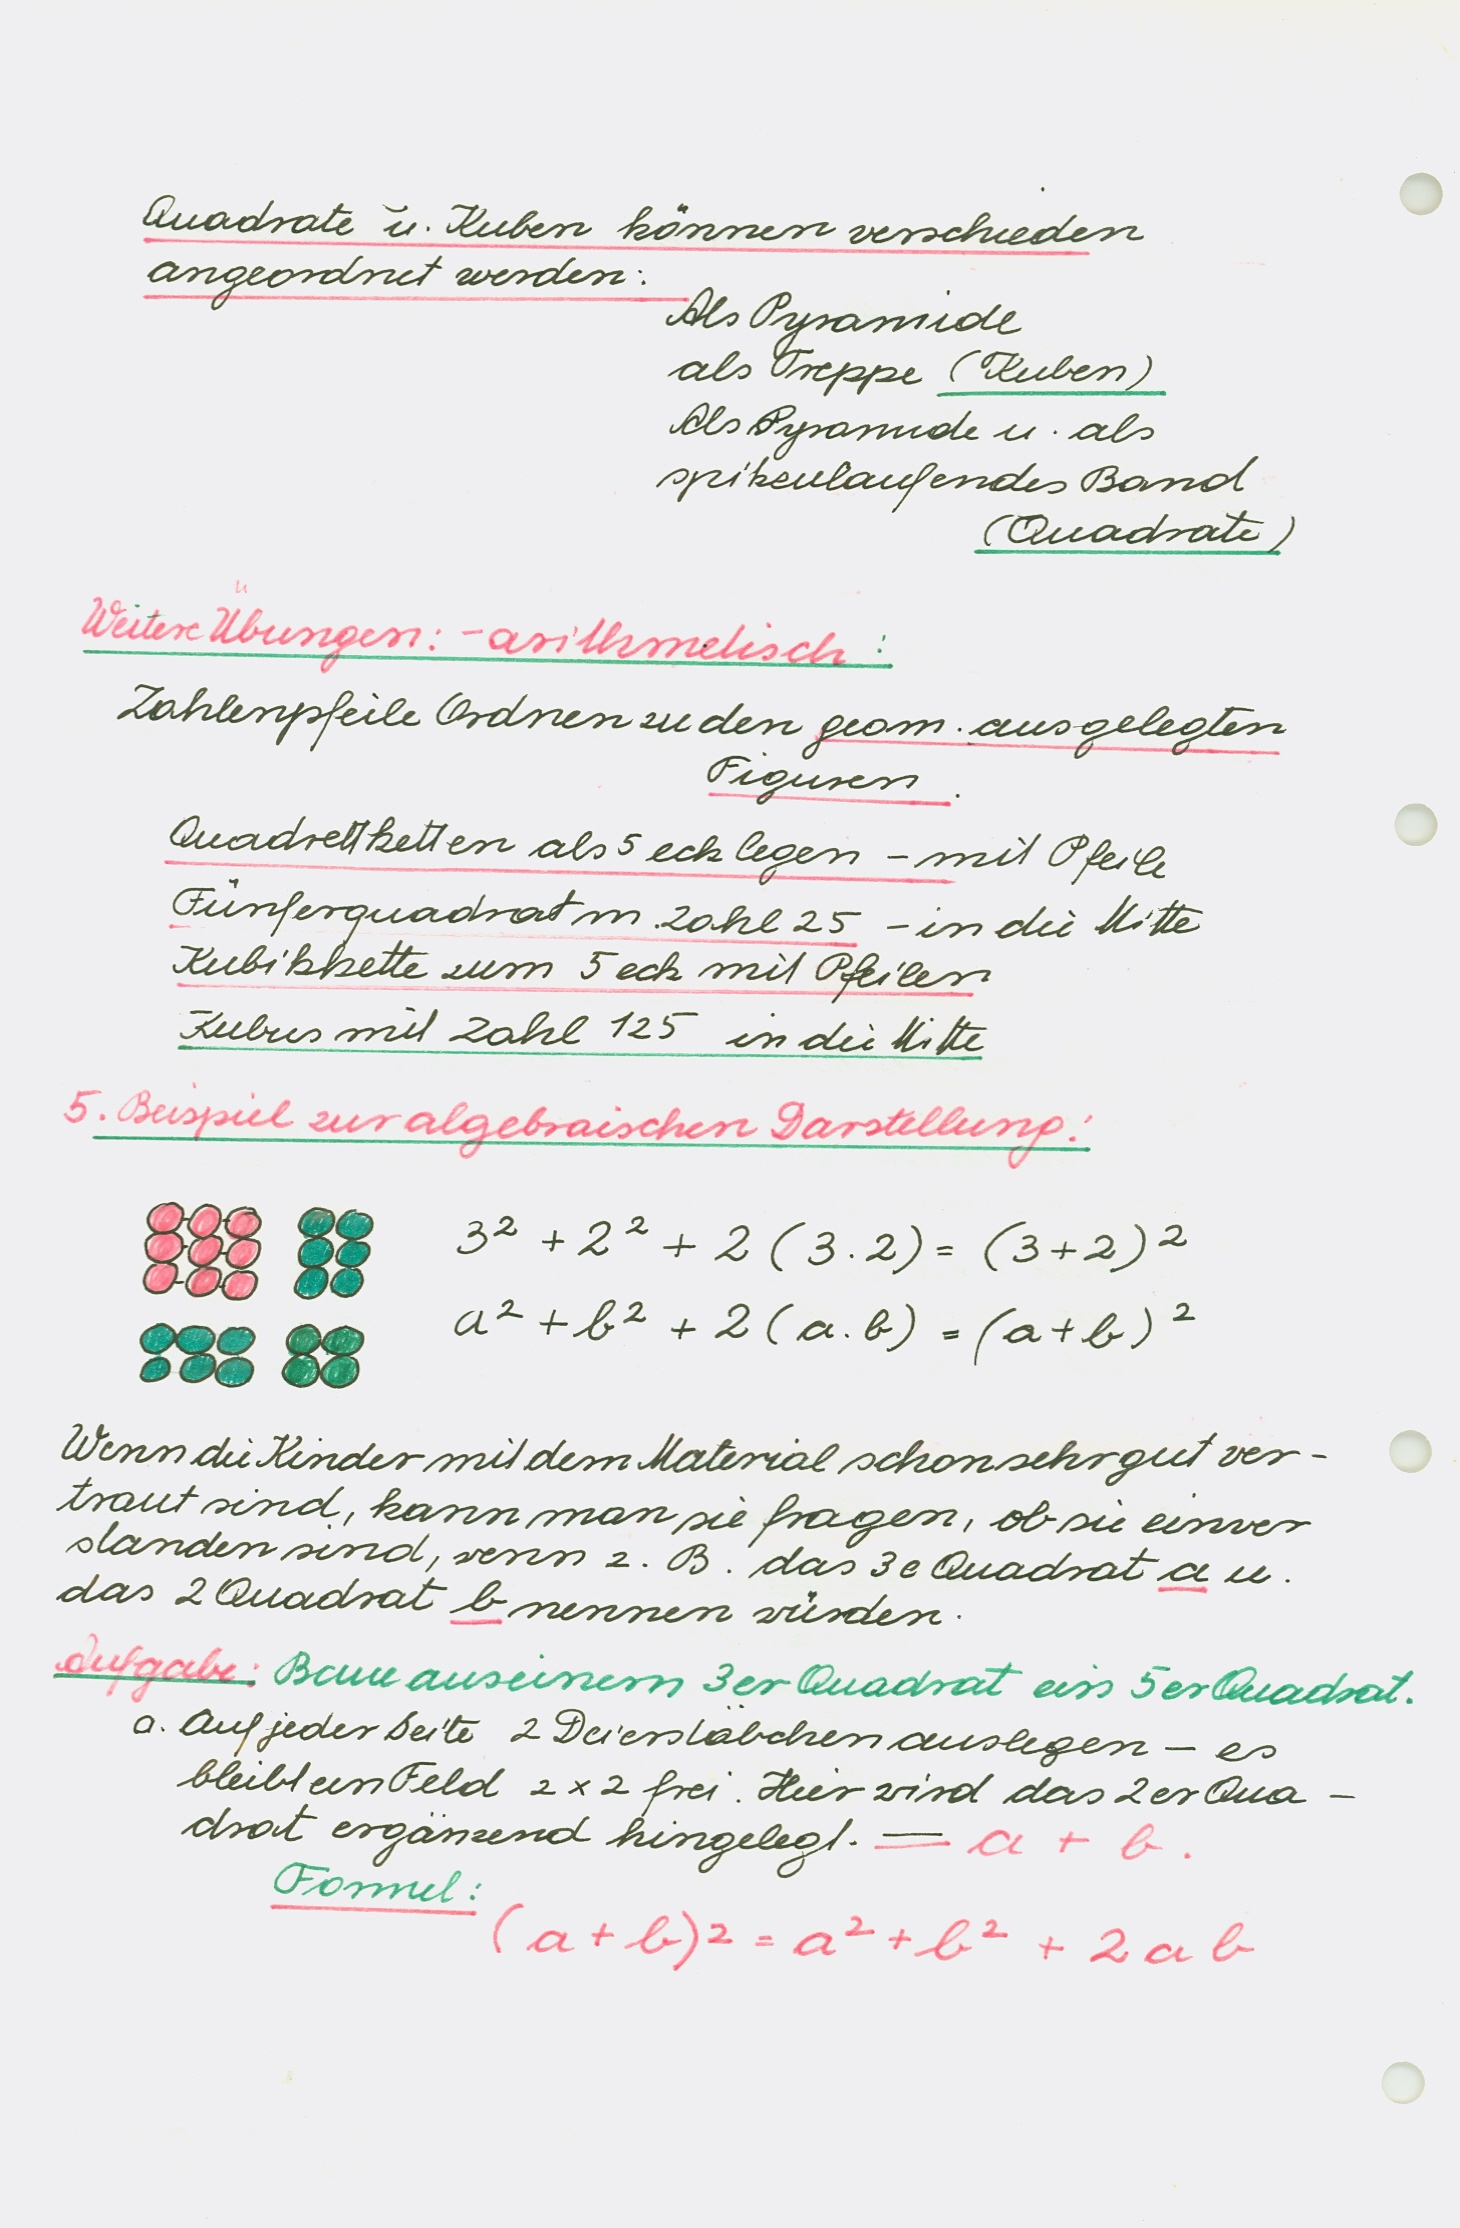 Quadrate u. Kuben können verschieden
angeordnet werden:
Als Pyramide
als Treppe (Kuben)
Als Pyramide u. als
spitzulaufendes Band
(Quadrate)
Weitere Übungen: - arithmetisch:
Zahlenpfeile Ordnen zu den geom. ausgelegten
Figuren.
Quadratketten als 5 eck legen - mit Pfeile
Fünferquadrat m. Zahl 25 - in die Mitte
Kubikkette zum 5 eck mit Pfeilen
Kubus mit Zahl 125 in die Mitte
5. Beispiel zur algebraischen Darstellung:
3² + 2² + 2 (3 . 2) = (3 + 2)²
a² + b² + 2 (a . b) = (a + b)²
Wenn die Kinder mit dem Material schon sehr gut ver-
traut sind, kann man sie fragen, ob sie einver
standen sind, wenn z. B. das 3e Quadrat a u.
das 2 Quadrat b nennen würden.
Aufgabe: Baue aus einem 3er Quadrat ein 5er Quadrat.
a. Auf jeder Seite 2 Deierstäbchen auslegen - es
bleibt ein Feld 2 x 2 frei. Hier wird das 2er Qua -
drat ergänzend hingelegt. = a + b.
Formel:
(a + b)² = a² + b² + 2 a b